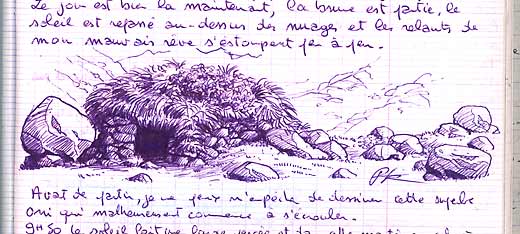 Le jour est bien là maintenant, la brume est partie, le
soleil est repassé au-dessus des nuages et les relents de
mon mauvais rêve s'estompent peu à peu.
PK
Avant de partir, je ne peux m'empêcher de dessiner cette superbe
qui malheureusement commence à s'écrouler.
9H50 le soleil fait une